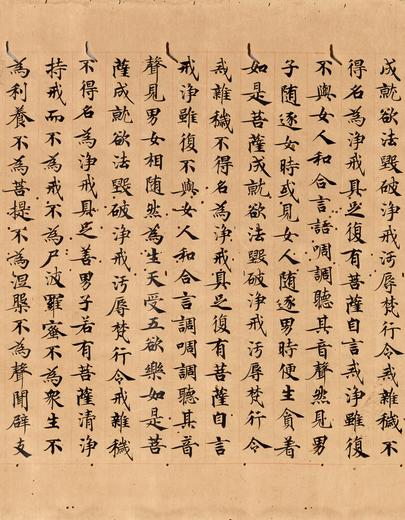 成就欲法毀破淨戒污辱梵行令戒雜穢不
得名為淨戒具足復有菩薩自言戒淨雖復
不與女人和合言語啁調聽其音聲然見男
子隨逐女時或見女人隨逐男時便生貪著
如是菩薩成就欲法毀破淨戒污辱梵行令
戒雜穢不得名為淨戒具足復有菩薩自言
戒淨雖復不與女人和合言調啁調聽其音
聲見男女相隨然為生天受五欲樂如是菩
薩成就欲法毀破淨戒污辱梵行令戒雜穢
不得名為淨戒具足善男子若有菩薩清淨
持戒而不為戒不為尸波羅蜜不為衆生不
為利養不為菩提不為涅槃不為聲聞辟支